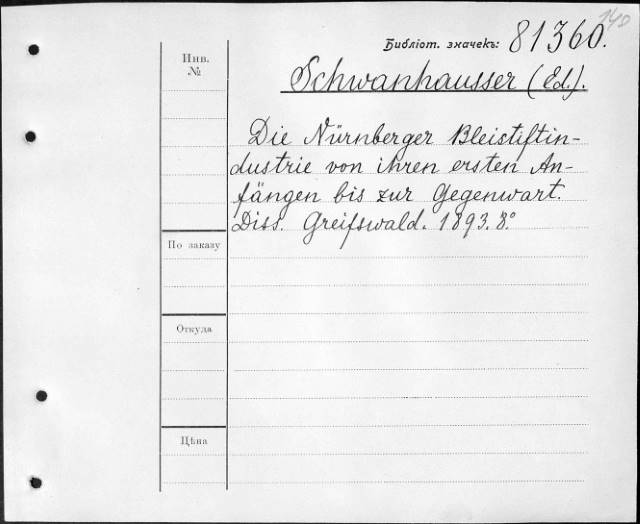 140
Библіот. значекъ: 81360.
Инв.
№
Schwanhausser (Ed.).
Die Nürnberger Bleistiftin-
dustrie von ihren ersten An-
fängen bis zur Gegenwart.
Diss. Greifswald. 1893. 8°
По заказу
Откуда
Цѣна